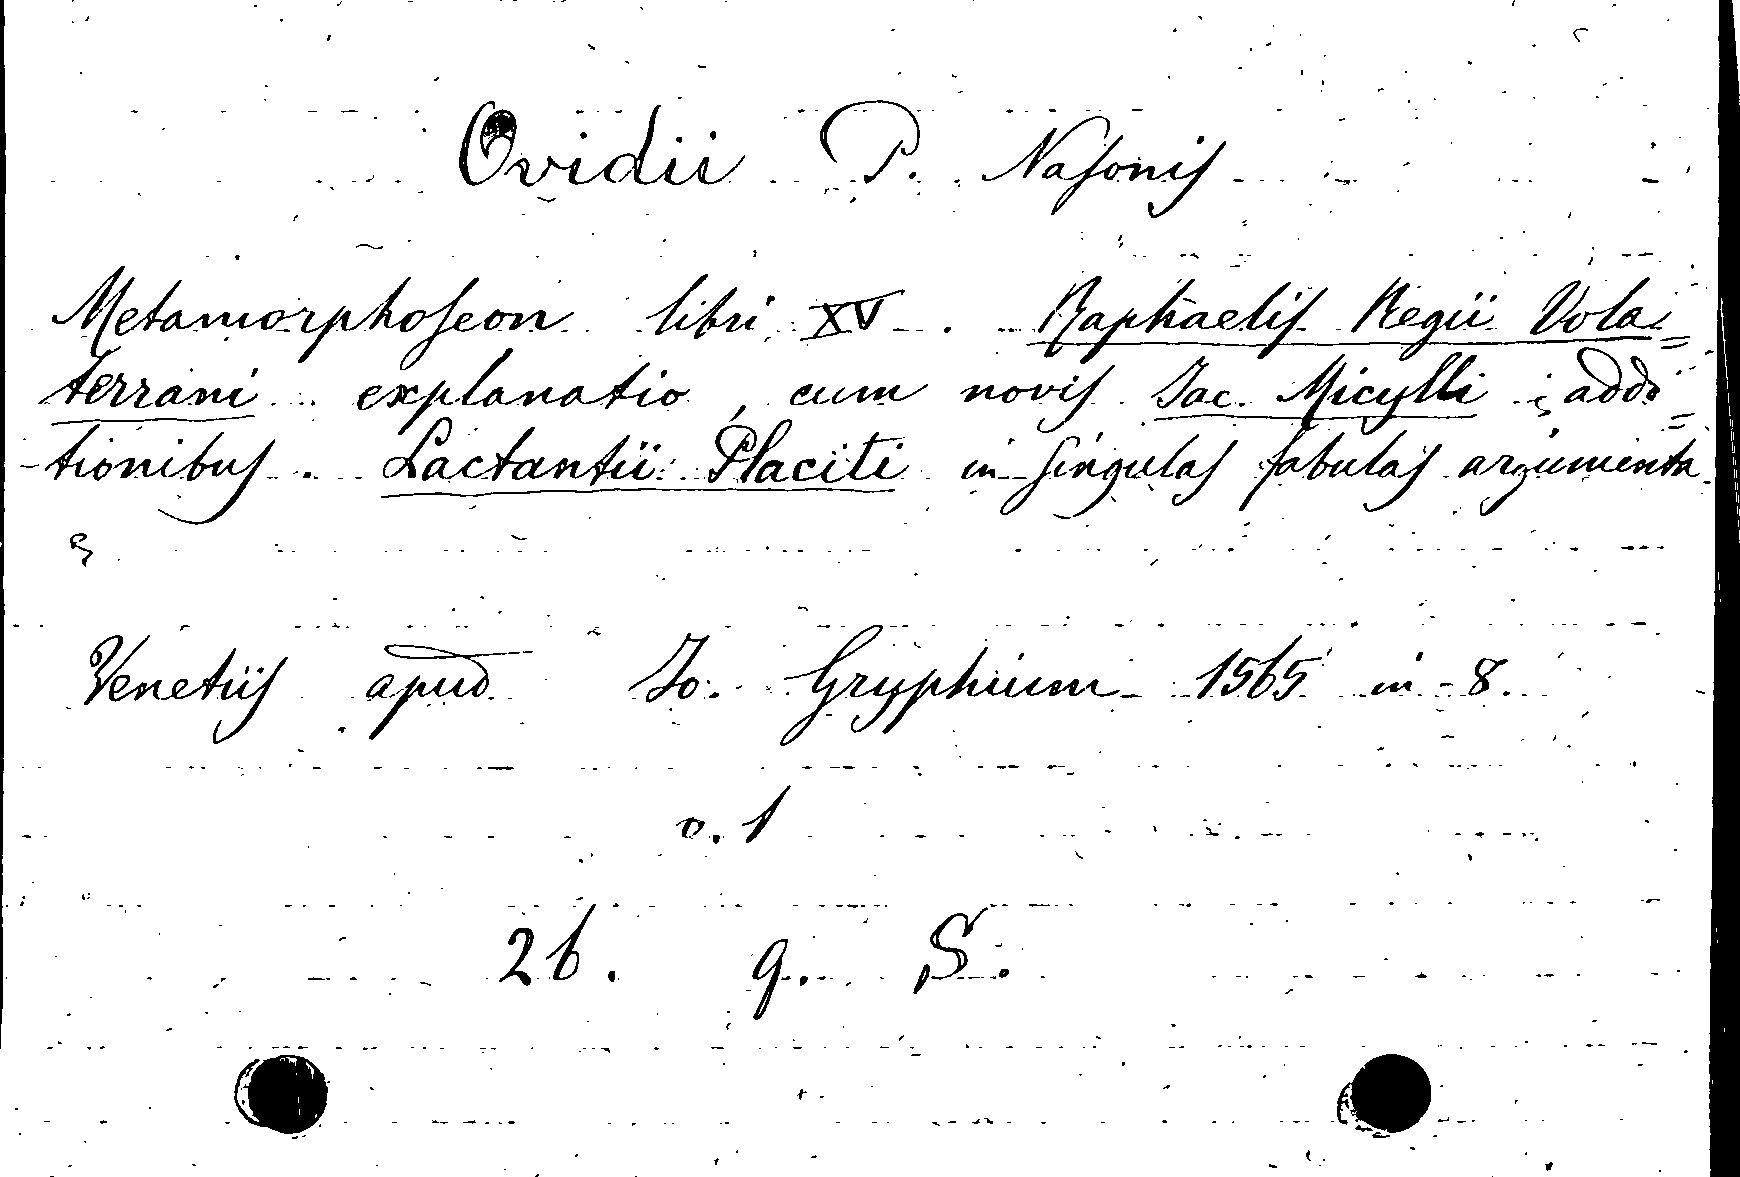 Ovidii P. Nasonis
Metamorphoseon libri XV. Raphaelis Regii Vola=
terrani explanatio, cum novis Jac. Micylli addi=
tionibus. Lactantii Placiti in singulas fabulas argumenta
Venetiis apud Jo. Gryphium 1565 in 8.
v. 1
26. q. S.